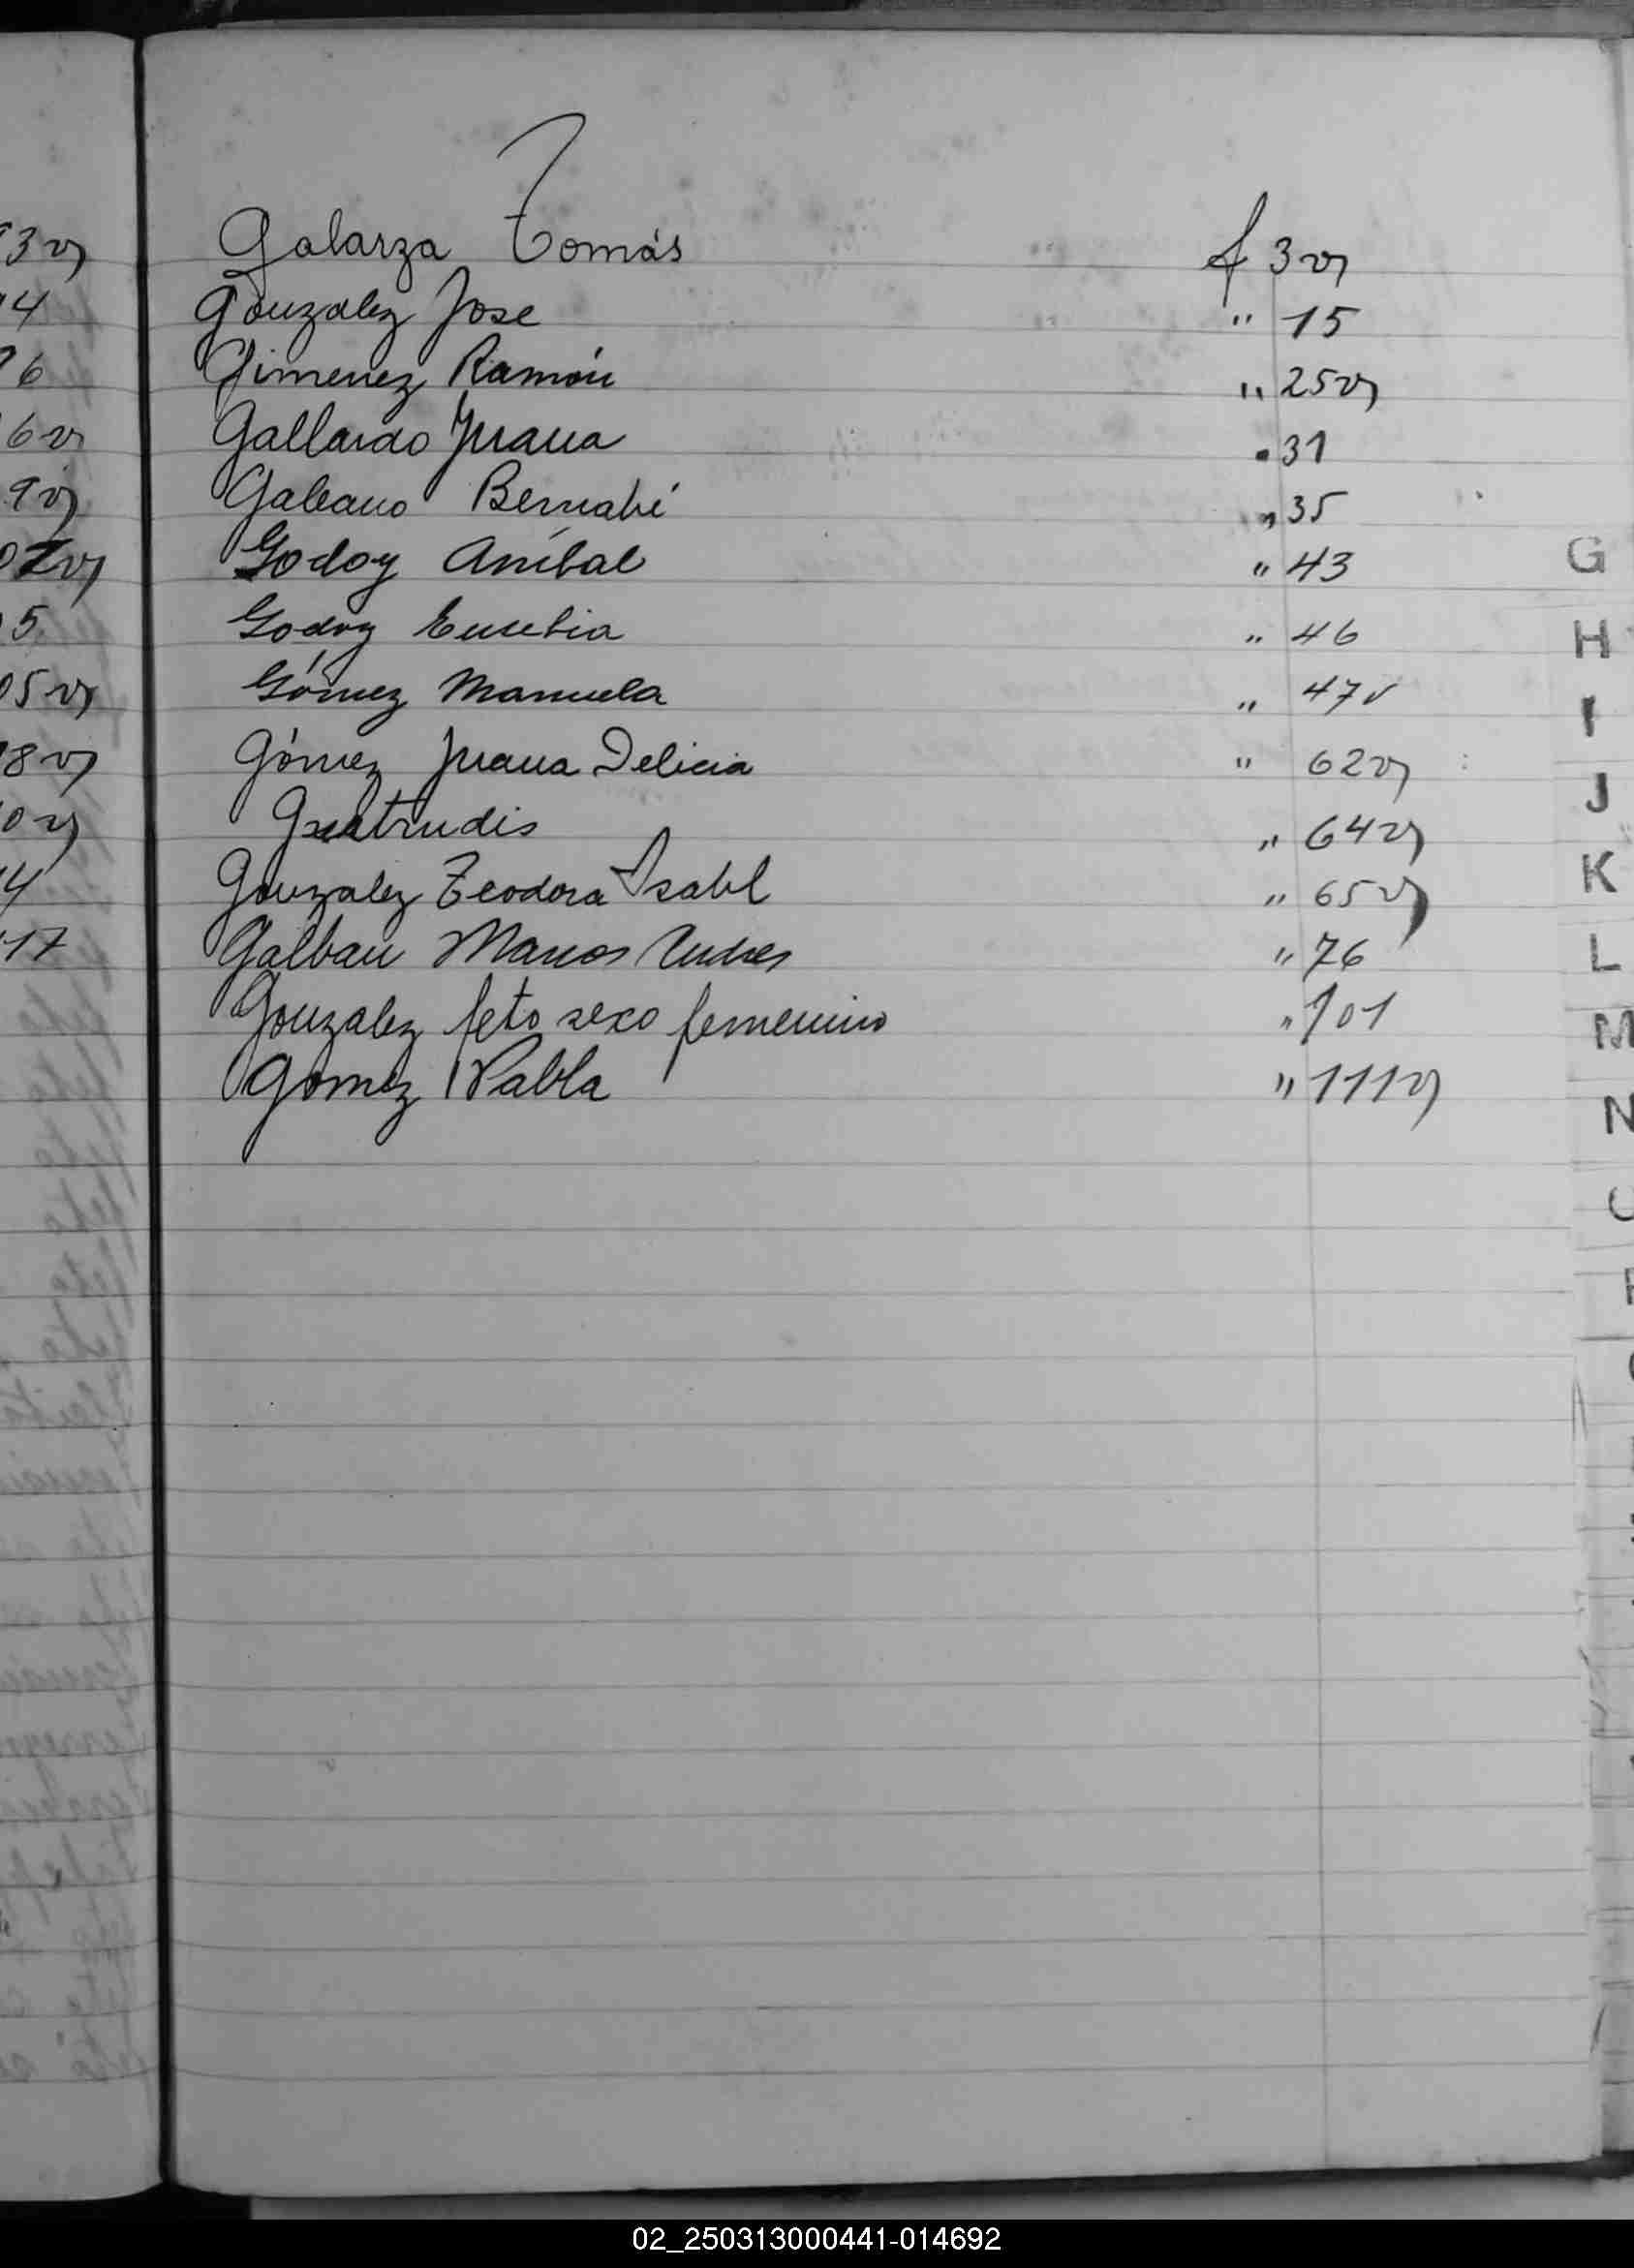 Galarza Tomás f 3v
Gonzalez Jose " 15
Gimenez Ramón " 25v
Gallardo Juana " 31
Galeano Bernabé " 35
Godoy Aníbal " 43
Godoy Eusebia " 46
Gómez Manuela " 47v
Gómez Juana Delicia " 62v
Gertrudis " 64v
Gonzalez Teodora Isabel " 65v
Galban Marcos Andres " 76
Gonzalez feto sexo femenino " 101
Gomez Pabla " 111v
G
H
I
J
K
L
M
N
02_250313000441-014692